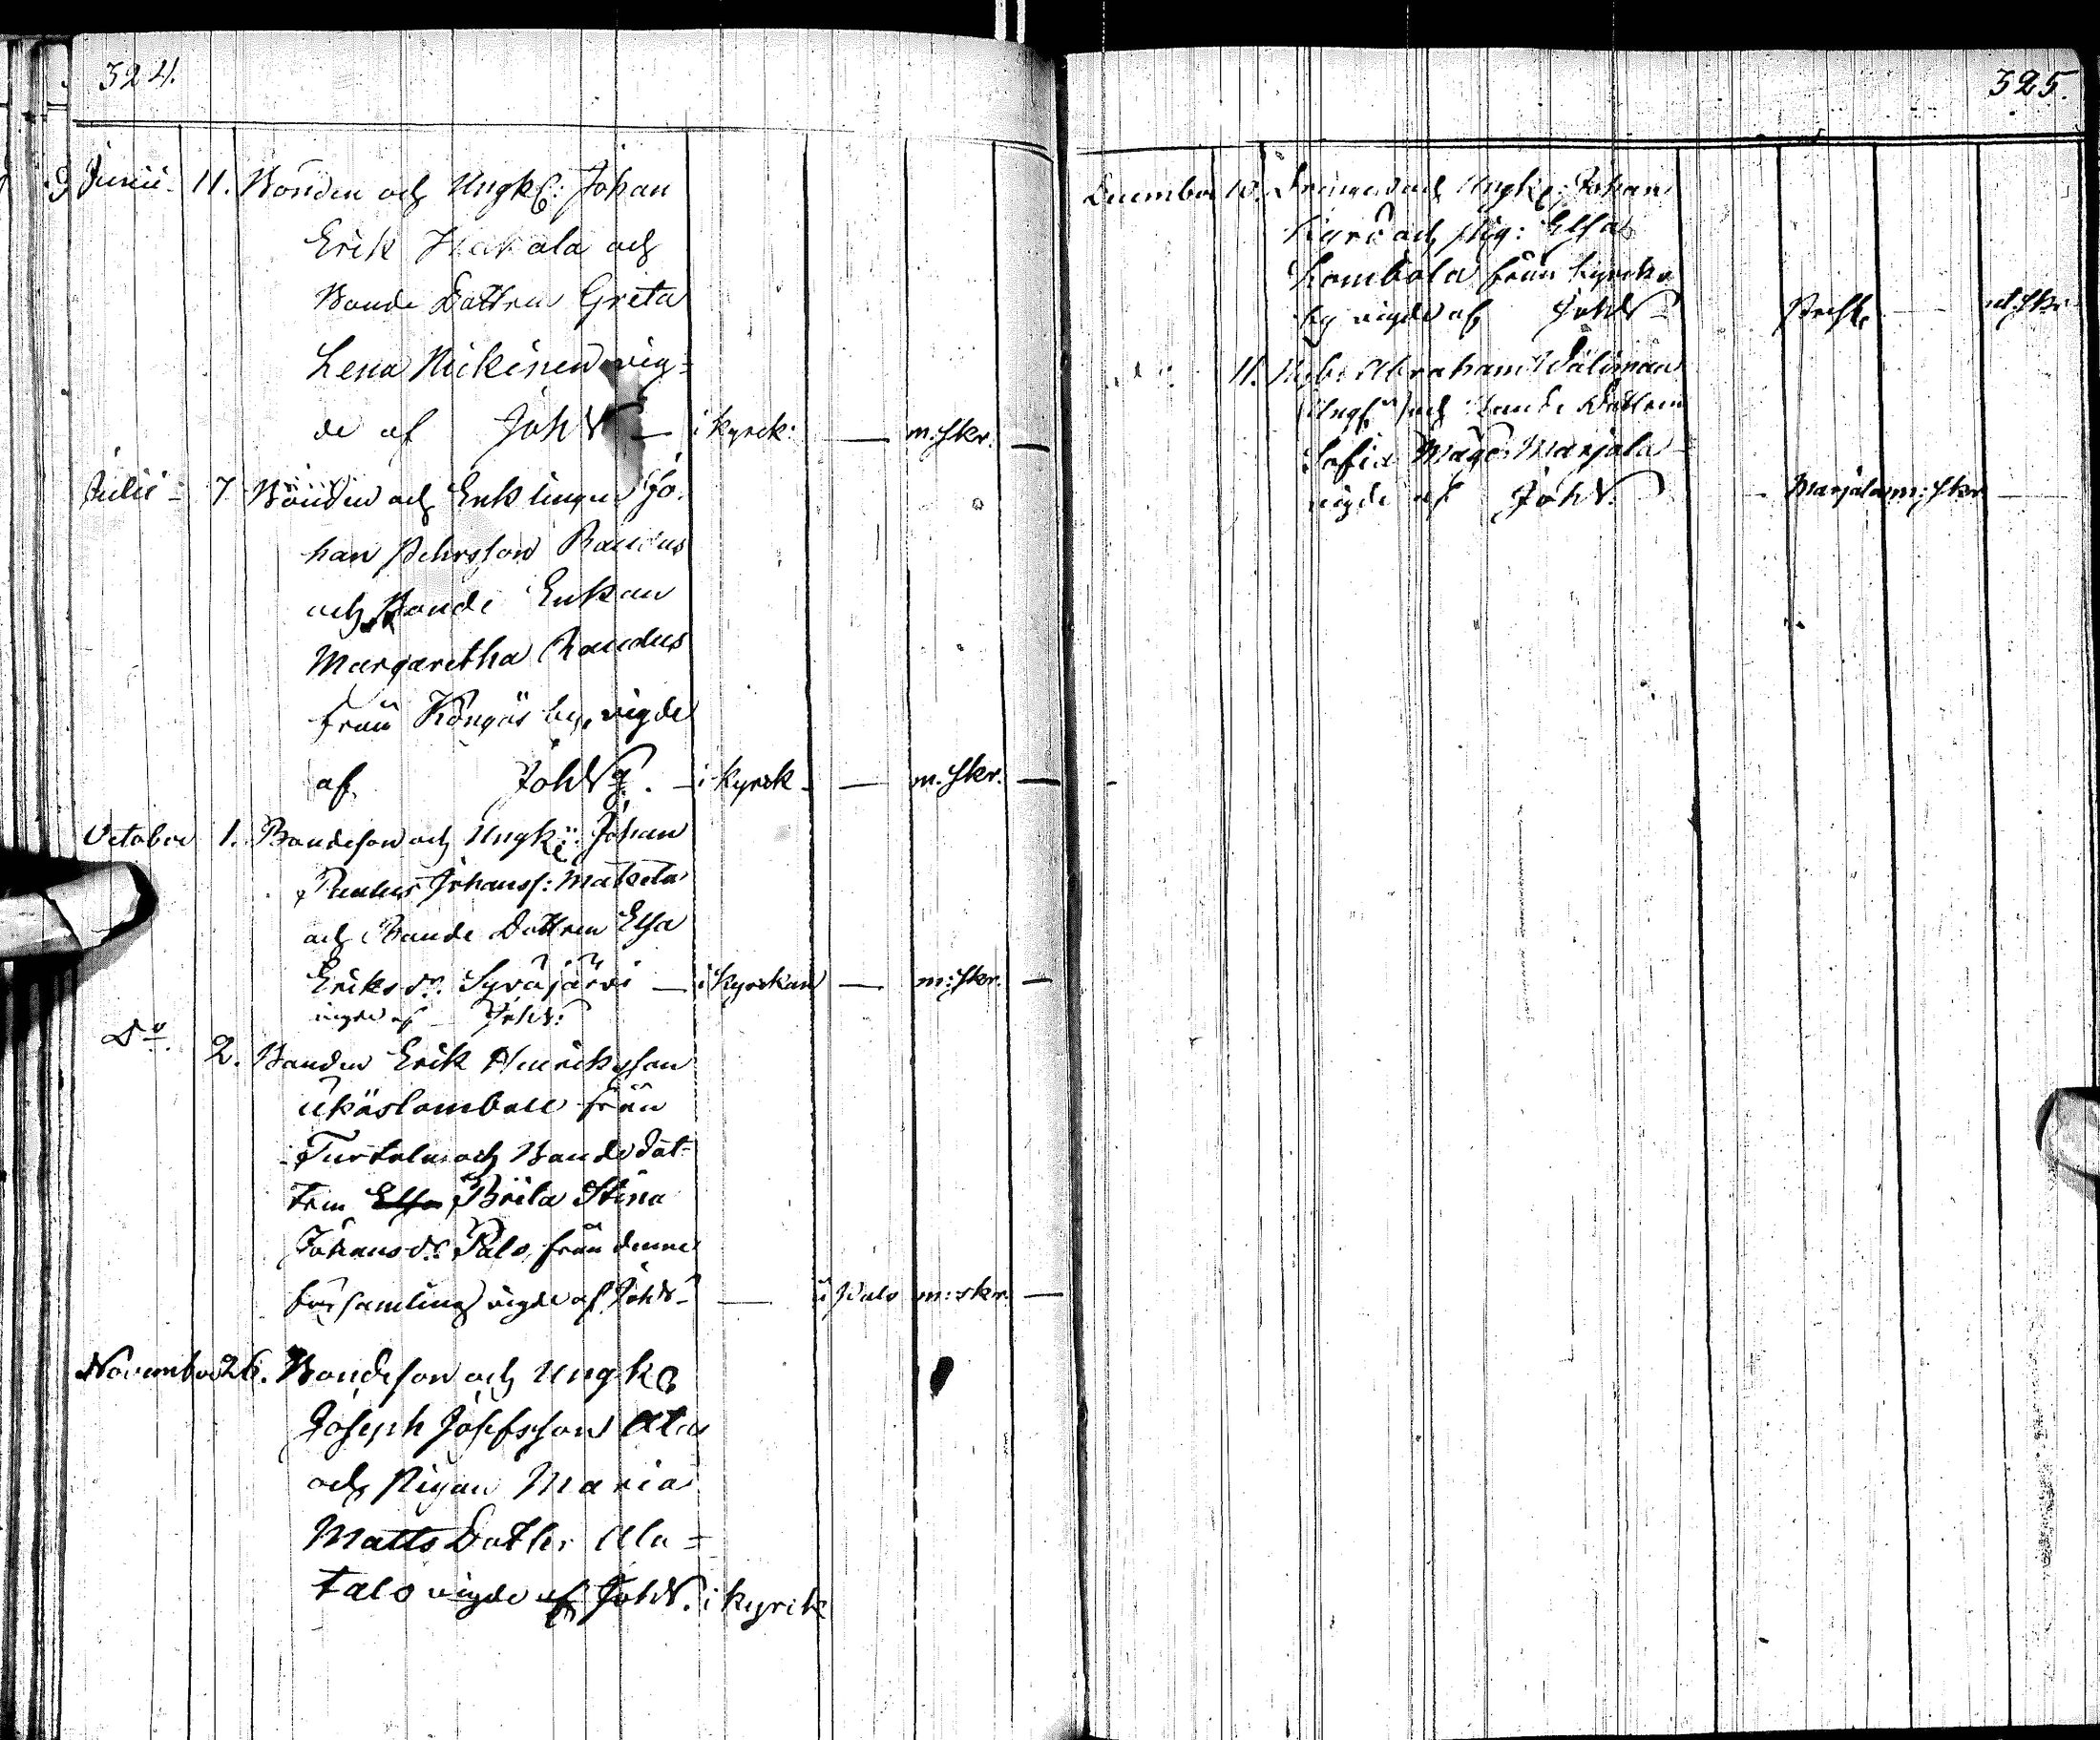 324.
Junii 11. Bonden och Ungk: Johan
Erik och
Bonde Dottren Greta
Lena vig=
de af Joh W i kyrck: — m: skr. —
Julii 7 Bonden och Enklingen Jo-
han Pehrsson Raudus
och Bonde Enkan
Margaretha Raudus
från Köngäs by, vigde
af Joh W — i kyrck — m. skr. —
October 1. Bondeson och Ungk: Johan
Johanss: Matzeta
och Bonde Dottren Elsa
Eriks dr. Syväjärvi — i Kyrckan — m: skr. —
vigde af Joh W.
Do. 2. Bonden Erik Henricksson
från
Turtola och Bonde Dot-
tren Elsa Brita Stina
Johans dr. Palo, från denne
församling vigde af Joh W — i Palo m: skr. —
November 26. Bondeson och Ungk
Joseph Josefsson Ala
och Pigan Maria
Matts Dotter Ala=
talo vigde af Joh W. i kyrck
325.
December 10. och Ungk: Johan
och Pig: Elsa
Lombola från kyrcko
by vigde af Joh W Prest. m: skr.
11. Nyb: Abraham
(Ungk) och Bonde Dottren
Sofia Marjala
vigde af Joh W. — Marjala m: skr —